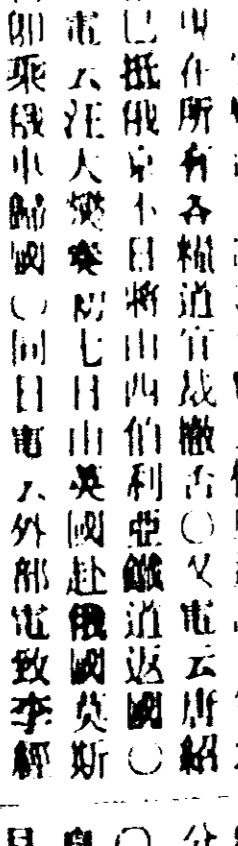 所有各糧道官裁撤否○又電云唐紹
已抵俄京不日將由西伯利亞鐵道返國○
電云汪大燮七日由英國赴俄國莫斯
即乘俄歸國○同日電云外部電致李經
分
○
日